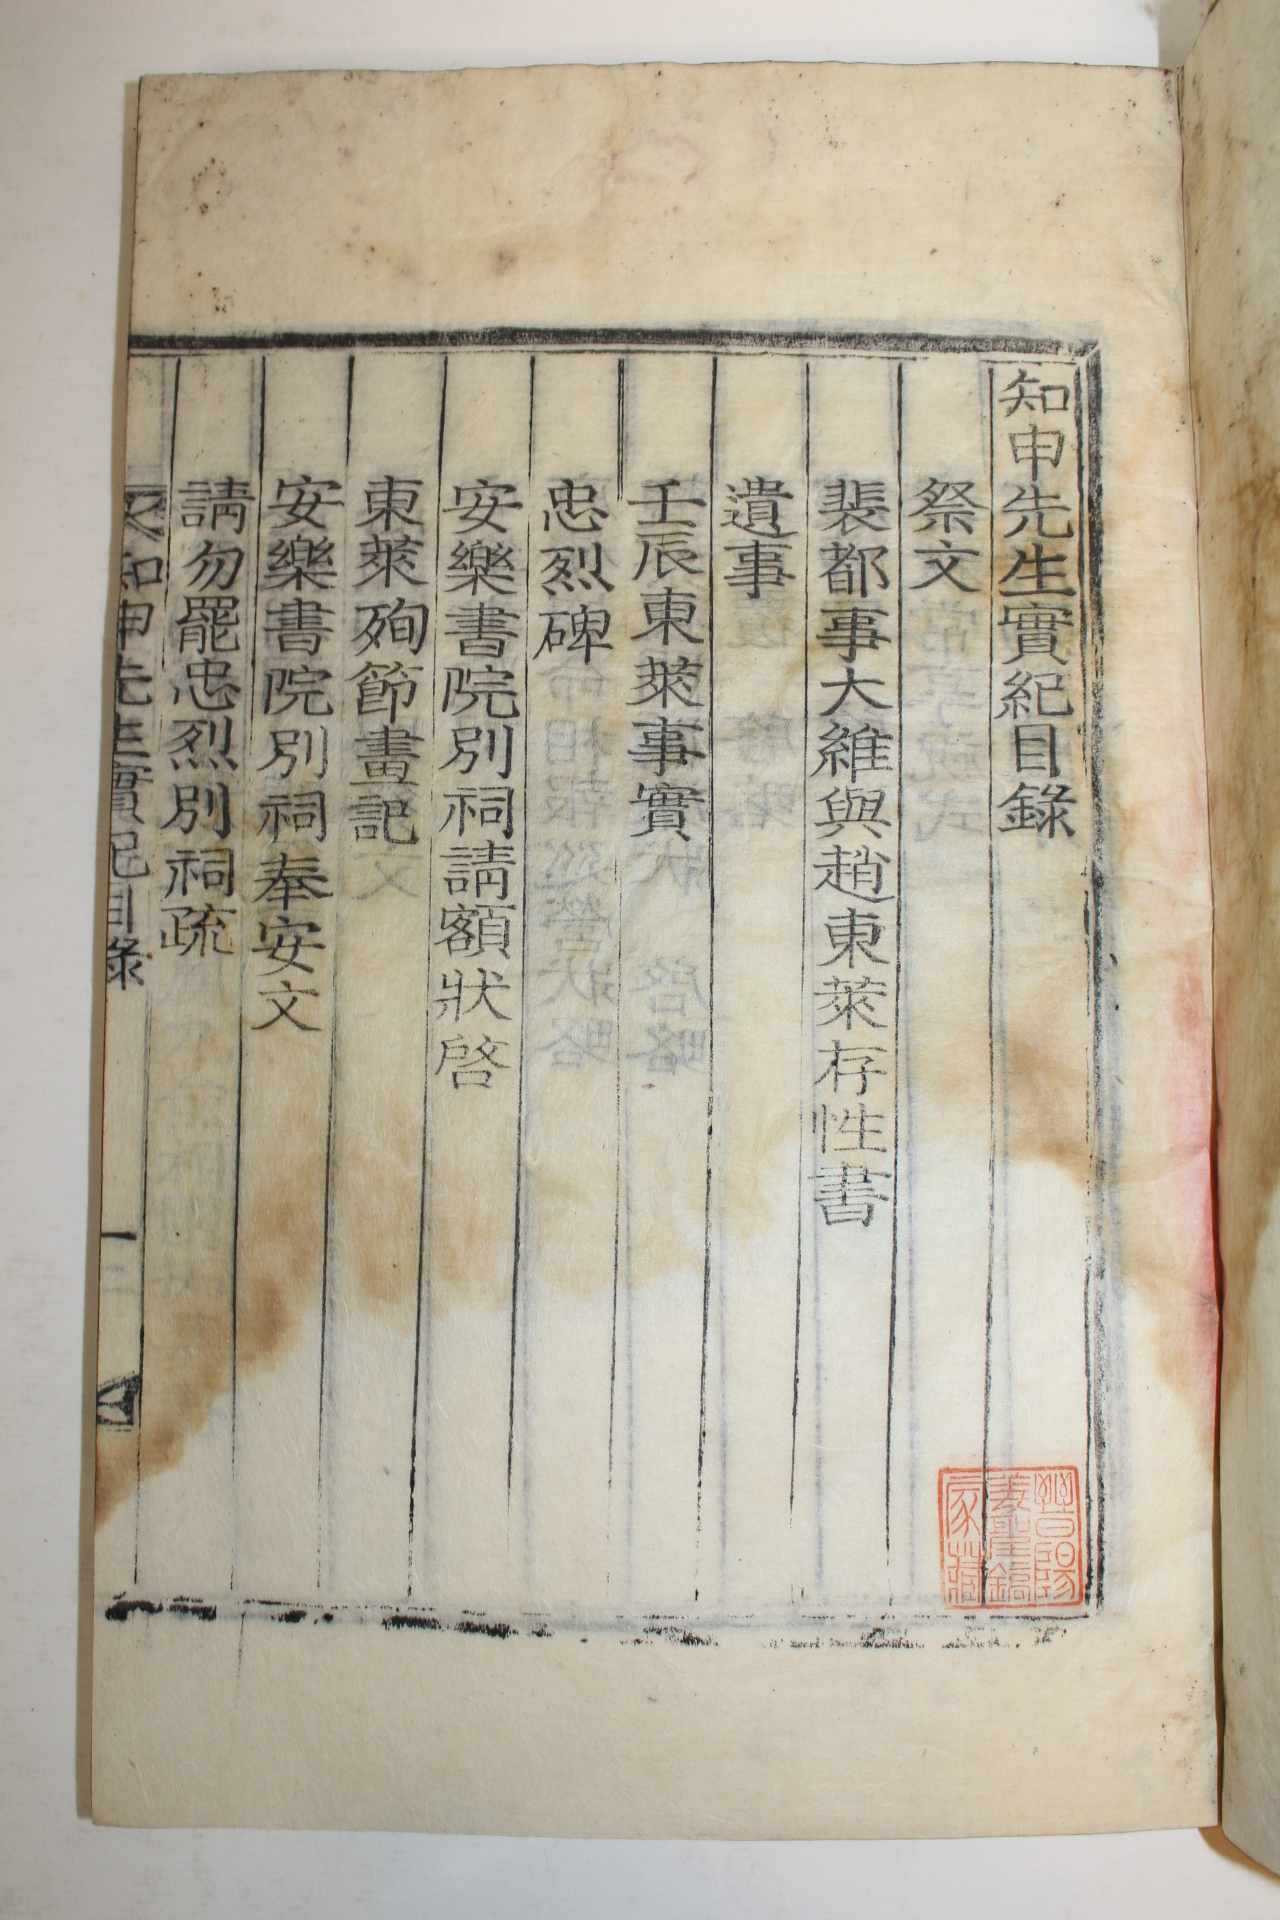 知申先生實紀目錄
祭文
裴都事大維與趙東萊存性書
遺事
壬辰東萊事實
忠烈碑
安樂書院別祠請額狀啓
東萊殉節畫記
安樂書院別祠奉安文
請勿罷忠烈別祠疏
知申先生實紀目錄
一
晉陽
姜聖鎬
家藏